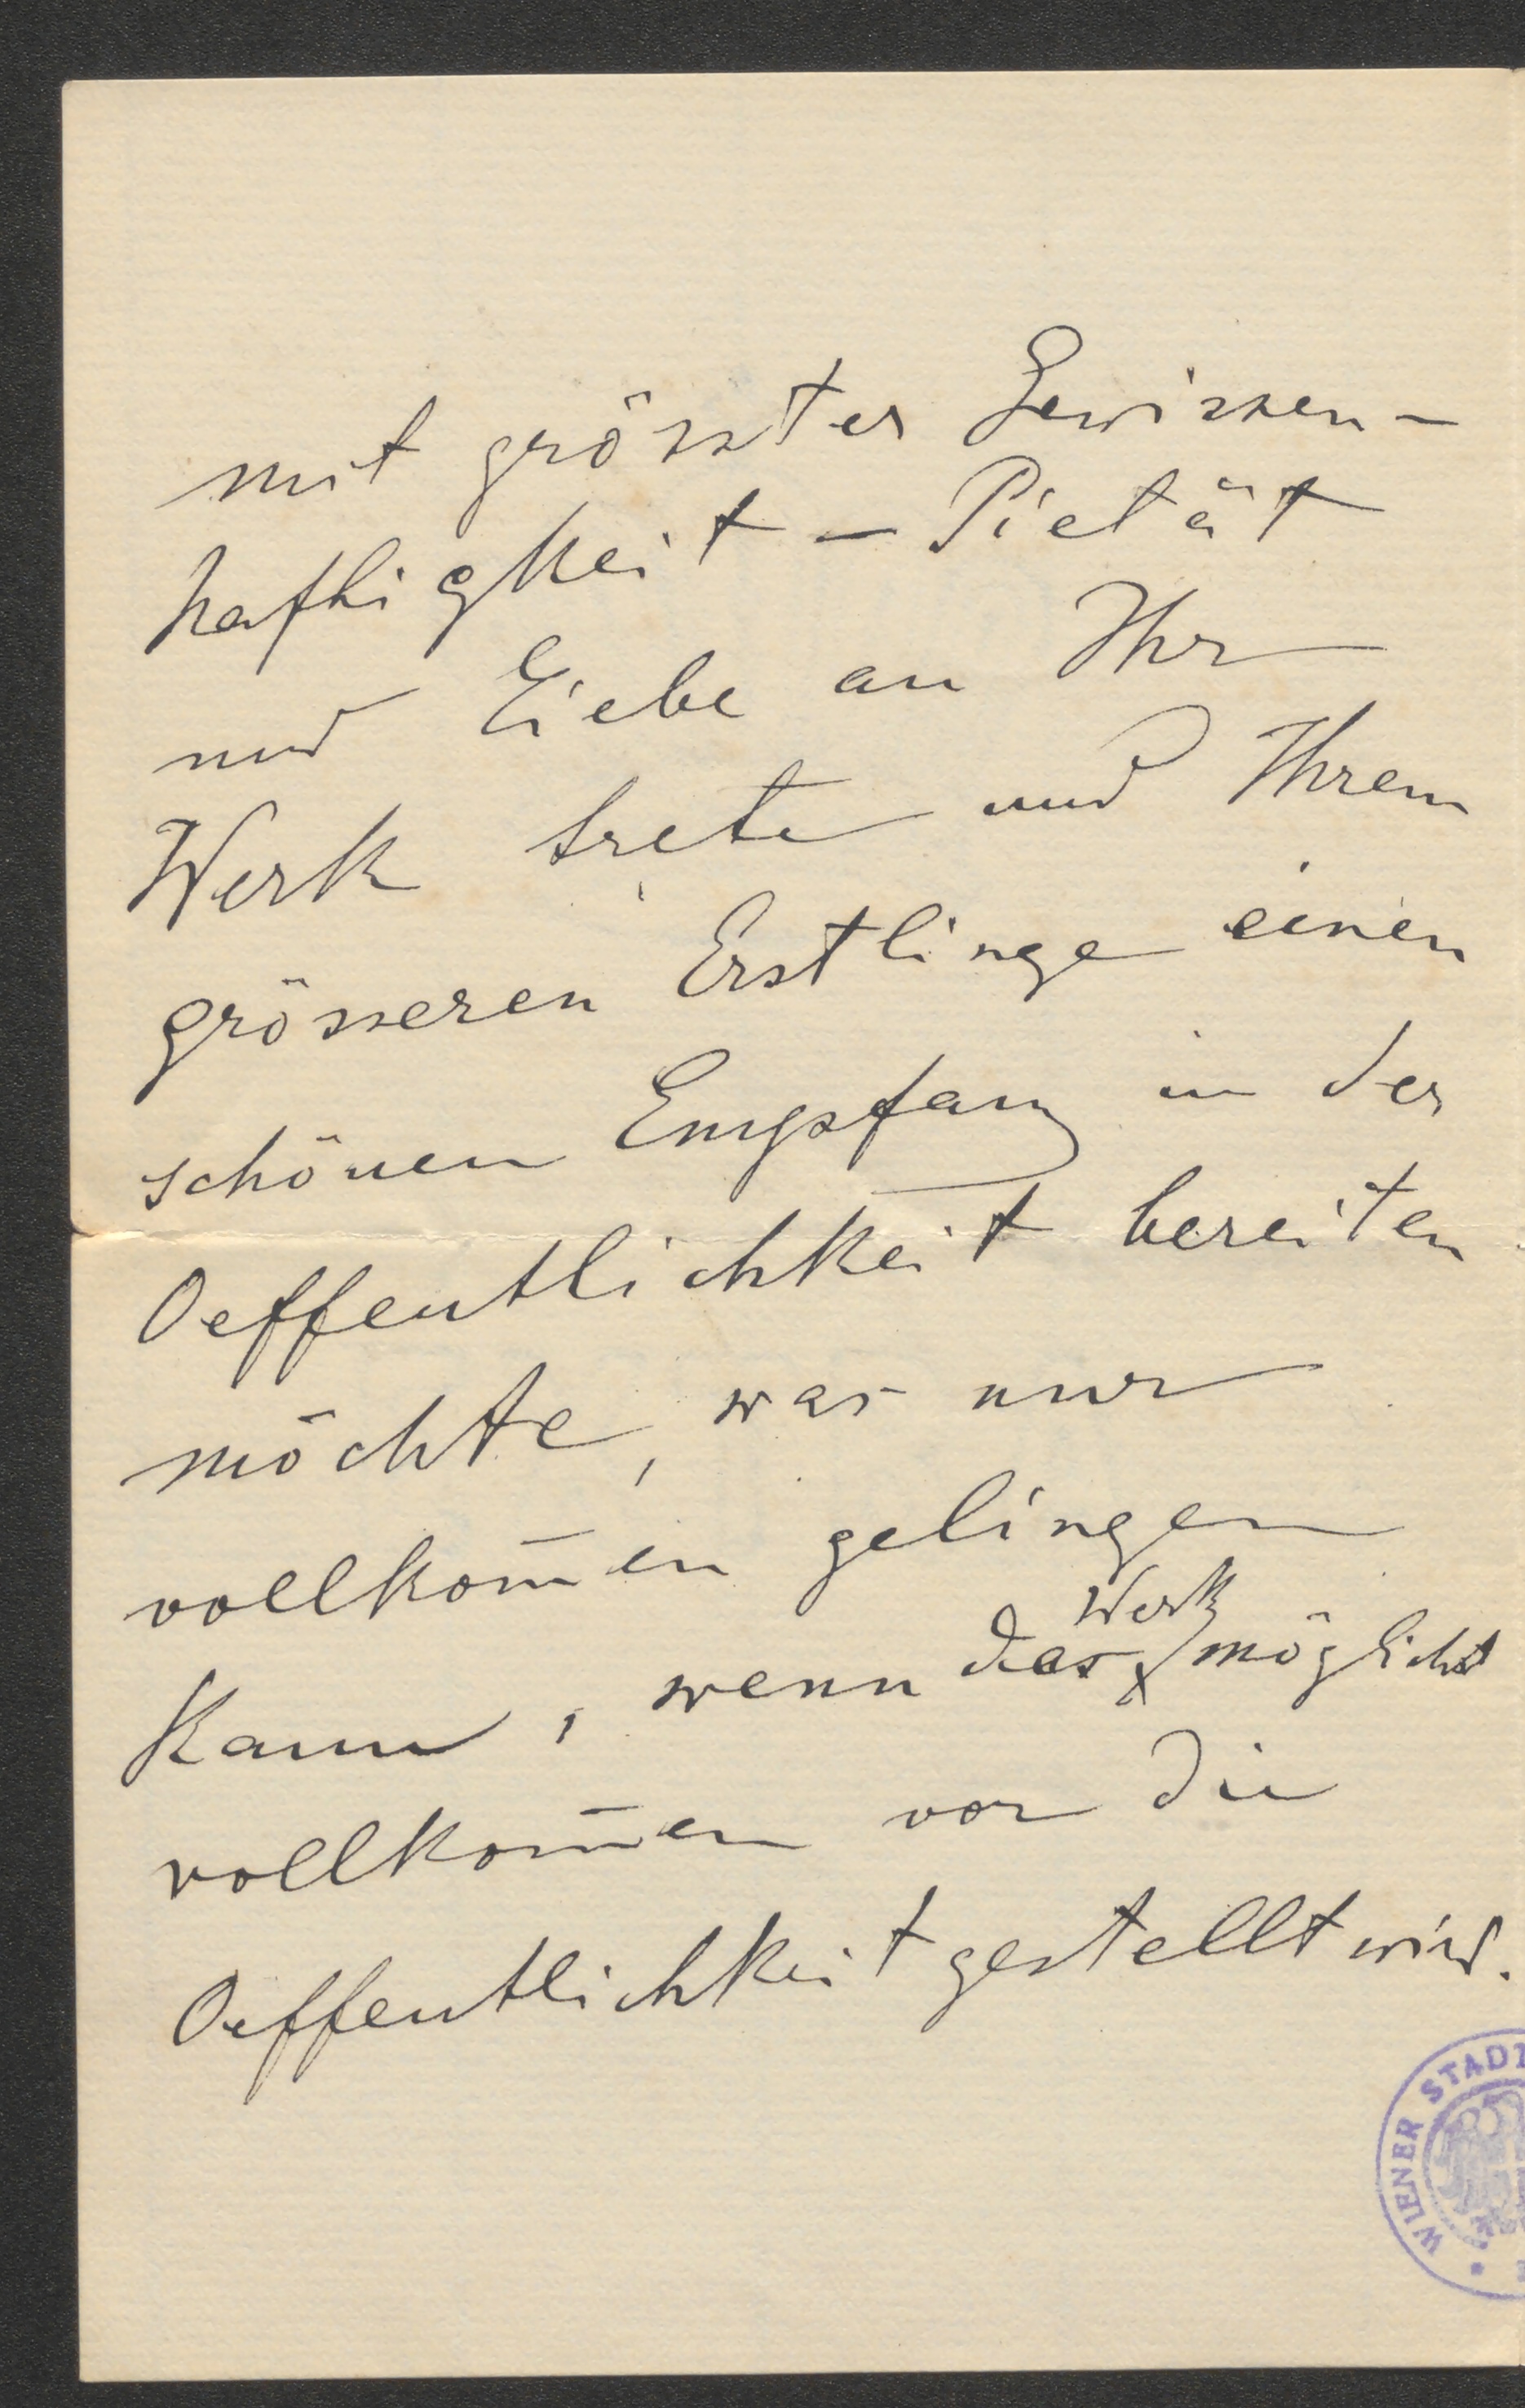 mit grösster Gewissen-
haftigkeit – Pietät
und Liebe an Ihr
Werk trete und Ihrem
grösseren Erstlinge einen
schönen Empfang in der
Oeffentlichkeit bereiten
möchte, was nur
vollkom̄en gelingen
kann, wenn das Werk möglichst
vollkom̄en vor die
Oeffentlichkeit gestellt wird.
WIENER STADT